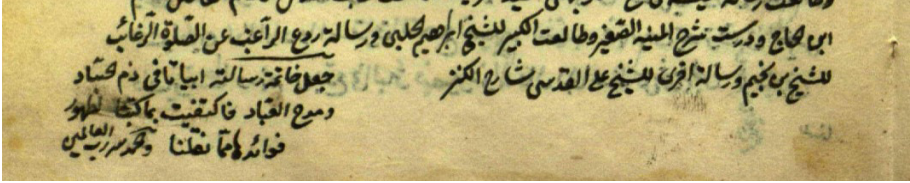 ابى الحاج ودرست شرح المنيه الصغير وطالعت الكبير للشيخ ابراهيم الحلبى ورسالة ردع الراغب عن الصلوة الرغائب
للشيخ بن نجيم ورسالة اخرى للشيخ على القدسى شارح الكنز جعل خاتمة رسالته ابياتا فى ذم
ومدح العباد فاكتفيت بما كتبا لظهور
فوائدها مما نقلنا والحمد لله رب العالمين